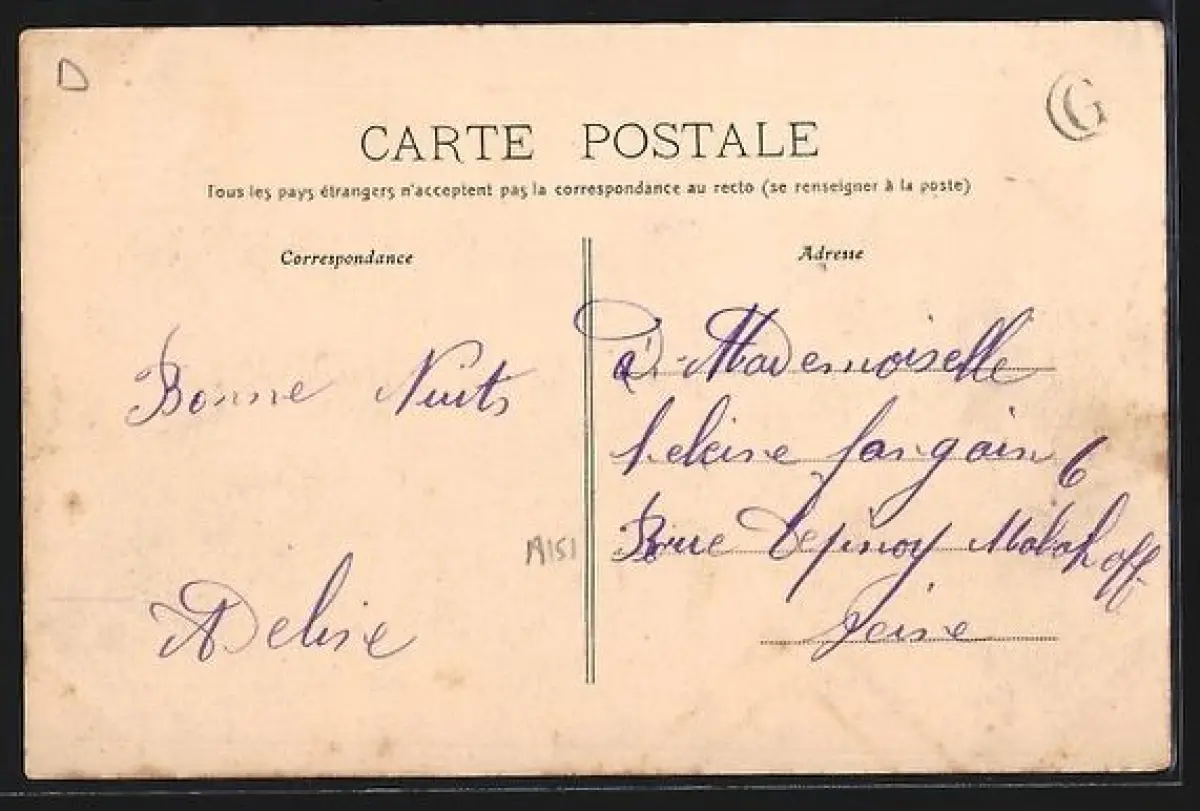 D
CG
CARTE POSTALE
Tous les pays étrangers n'acceptent pas la correspondance au recto (se renseigner à la poste)
Correspondance
Bonne Nuits
A151
Adresse
à Mademoiselle
6
Rue Malakoff
Seine